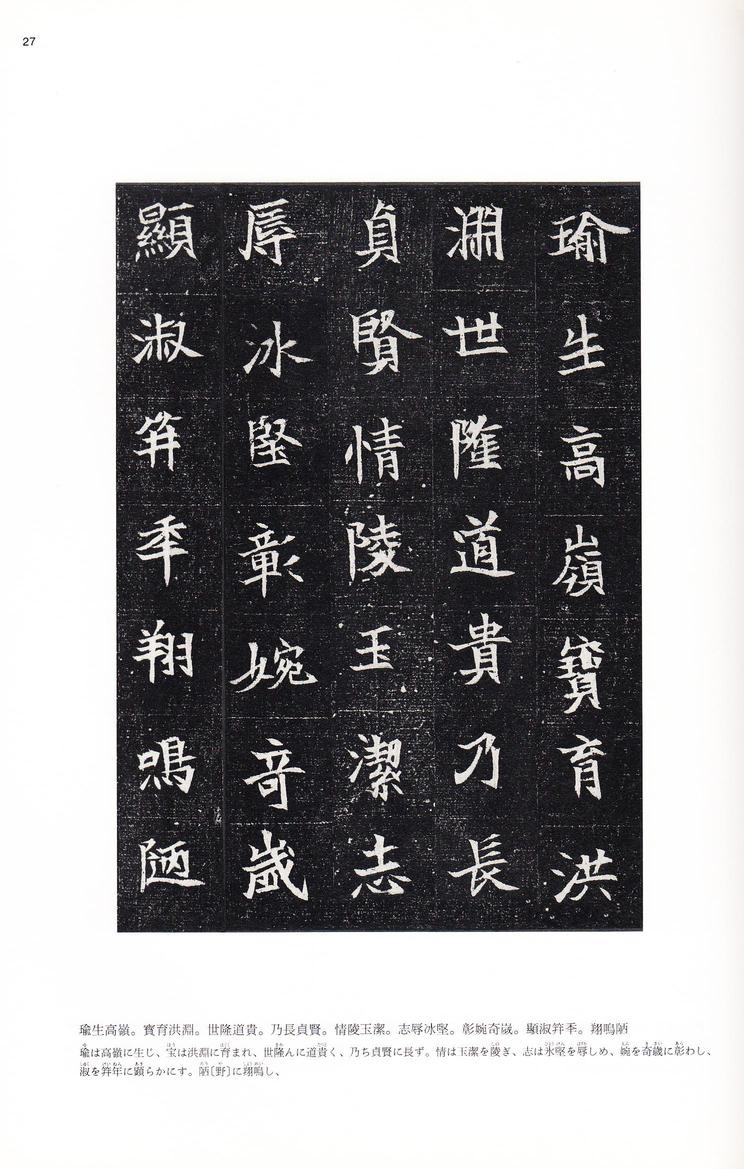 27
瑜生高嶺寶育洪
淵世隆道貴乃長
貞賢情陵玉潔志
辱冰堅彰婉奇歲
顯淑笄年翔鳴陋
瑜生高嶺。寶育洪淵。世隆道貴。乃長貞賢。情陵玉潔。志辱冰堅。彰婉奇歲。顯淑笄秊。翔鳴陋
瑜は高嶺に生じ、宝は洪淵に育まれ、世隆んに道貴く、乃ち貞賢に長ず。情は玉潔を陵ぎ、志は氷堅を辱しめ、婉を奇歳に彰わし、
淑を笄年に顕らかにす。陋〔野〕に翔鳴し、